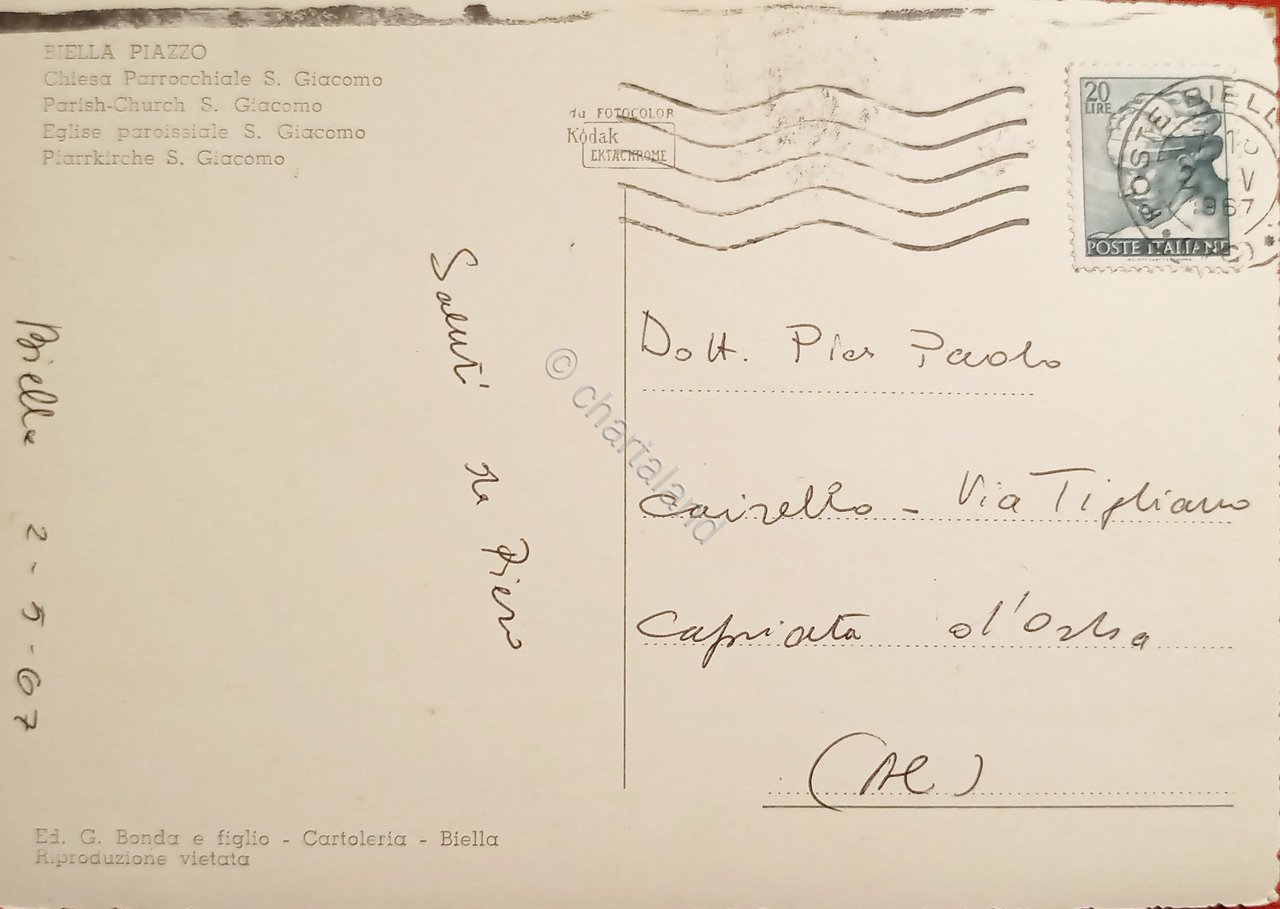 BIELLA PIAZZO
Chiesa Parrocchiale S. Giacomo
Parish-Church S. Giacomo
Eglise paroissiale S. Giacomo
Pfarrkirche S. Giacomo
da FOTOCOLOR
Kodak
EKTACHROME
20
LIRE
POSTE ITALIANE
POSTE BIELL
1967
Saluti da Piero
Biella 2-5-67
Dott. Pier Paolo
Via Tigliano
Capriata d'Orba
(AL)
© chartaland
Ed. G. Bonda e figlio - Cartoleria - Biella
Riproduzione vietata